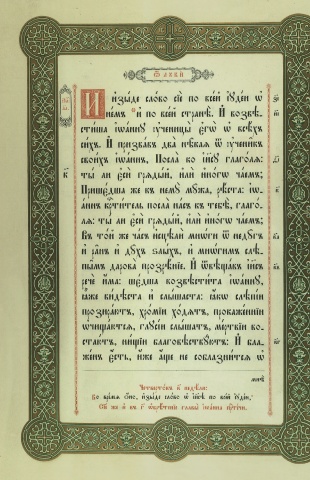 И изыде слово сїе по всей їꙋдеи ѡ
немъ и по всей странѣ. И возвѣ-
стиша їѡаннꙋ ᲂу҆ченицы єгѡ ѡ всѣхъ
сихъ. И призвавъ два нѣкая ѿ ᲂу҆ченикъ
своихъ їѡаннъ, посла ко їисꙋ глаголя:
ты ли єси грядый, или иногѡ чаемъ;
Пришедша же къ немꙋ мꙋжа, рѣста: їѡ-
аннъ крⷭ҇титель посла насъ къ тебѣ, глаго-
ля: ты ли єси грядый, или иногѡ чаемъ;
Въ той же часъ исцѣли многи ѿ недꙋгъ
и ранъ и дꙋхъ ѕлыхъ, и многимъ слѣ-
пымъ дарова прозрѣнїе. И ѿвѣщавъ їисъ
рече има: шедша возвѣстита їѡаннꙋ,
ꙗже видѣста и слышаста: ꙗкѡ слѣпїи
прозираютъ, хромїи ходятъ, прокаженнїи
ѡчищаются, глꙋсїи слышатъ, мертвїи во-
стаютъ, нищїи благовѣствꙋютъ: И бла-
женъ єсть, иже аще не соблазнится ѡ
мнѣ
Во время ѻно, изыде слово ѡ їисѣ по всей їꙋдеи,